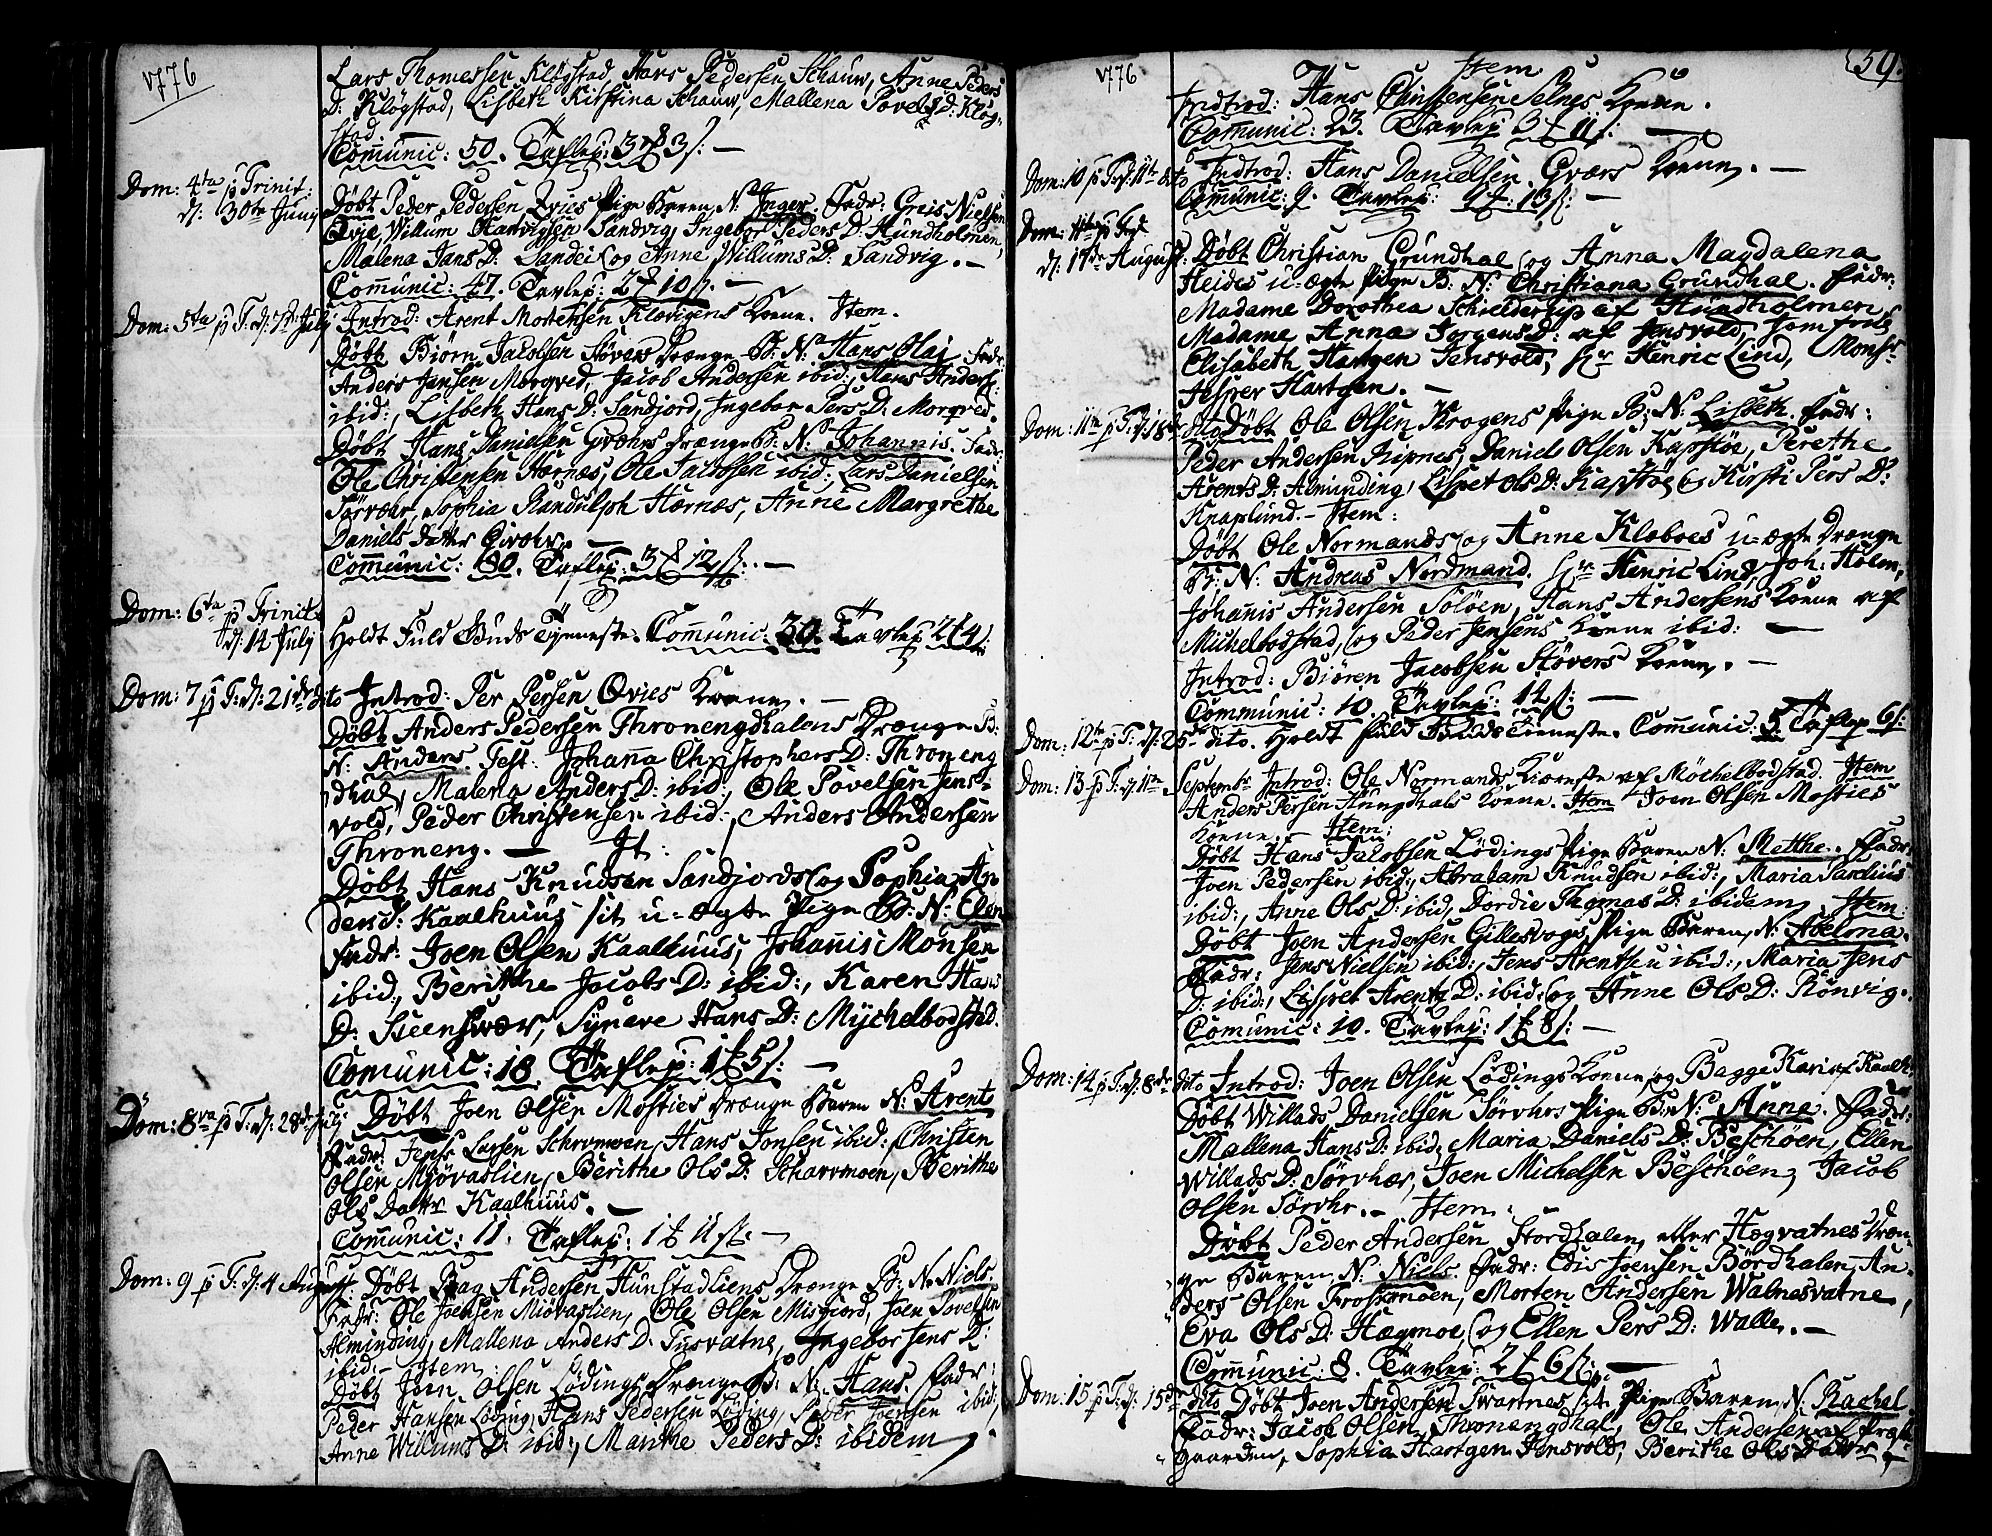 1776
Lars Thomessen Kløgstad, Hans Pedersen Schauw, Anne Peders
D: Kløgstad, Lisbeth Kirstina Schauw, Mallena Povels D: Kløg-
stad. —
Comunic: 50. Taflep: 3 3 ß: —
Dom: 4ta p Trinit:
d: 30te Junij
Døbt Peder Pedersen Qvies Pige Baren N: Inger. Fadr: Greis Nielsen
Qvie, Willum Hartvigsen Sandvig, Ingebor Peders D: Hundholmen,
Malena Hans D: og Anne Willums D: Sandvig. —
Comunic: 47. Tavlep: 2 10 ß: —
Dom: 5ta p T: d: 7de July
Introd: Arent Mortensen Kløvigens Kone. Item.
Døbt Biørn Jacobsen Støvers Drænge B: N: Hans Olai. Fadr
Anders Jansen Mørqved, Jacob Andersen ibid:, Hans Anders:
ibid:, Lisbeth Hans D: Sandjord, Ingebor Pers D: Mørqved.
Døbt Hans Danielsen Qværs Drænge B: N: Johannis. Fadr:
Ole Christensen Hærnæs, Ole Jacobsen ibid:, Lars Danielsen
Sørvær, Sophia Randulph Hærnæs, Anne Margrethe
Daniels datter —
Comunic: 80. Taflep: 3 12 ß: —
Dom: 6ta p Trinit:
d: 14 July
Holdt Fuld Guds Tjeneste. Comunic: 30. Tavlep 2 4 ß:
Dom: 7 p T: d: 21de dito
Introd: Per Persen Qvies Konen. —
Døbt Anders Pedersen Throneng dhalens Drænge B:
N: Anders. Test: Johanna Christophers D: Throneng
dhal, Malena Anders D: ibid:, Ole Povelsen Jens-
vold, Peder Christensen ibid:, Anders Andersen
Throneng. — It:
Døbt Hans Knudsen Sandjords og Sophia An-
dersd: Kaalhuus sit u-ægte Pige B: N: Elen
Fadr: Joen Olsen Kaalhuus, Johannis Monsen
ibid:, Berithe Jacobs D: ibid:, Karen Hans
D: Steensvær, Synave Hans D: Mychelbodstad.
Comunic: 18 Taflep: 1 5 ß: —
Dom: 8va p T: d: 28de July
Døbt Joen Olsen Mosties Drænge Baren N: Arent
Fadr: Larsen Hans Jonsen ibid: Christen
Olsen Mjøvaslien, Berithe Ols D: Scharvmoen, Berithe
Ols Datter Kaalhuus. —
Comunic: 11. Taflep: 1 11 ß: —
Dom: 9 p T: d: 4 August:
Døbt Andersen Hunstadliens Drænge B: N: Niels.
Fadr: Ole Joensen Miøvaslien, Ole Olsen Misfiord, Joen Povelsen
Alminding, Mallena Anders D: Tusvatne, Ingebor Jens D:
ibid: — Item:
Døbt Joen Olsen Lødings Drænge B: N: Hans. Fadr:
Peder Hansen Løding, Hans Pedersen Løding, Peder Joensen ibid:,
Anne Willums D: ibid:, Marthe Peders D: ibidem
1776
59.
Item
Indtrod: Hans Christensen Selnes Konen.
Comunic: 23. Tavlep 3 11 ß: —
Dom: 10 p T: d: 11te dito
Indtrod: Hans Danielsen Qværs Konen. —
Comunic: 9. Tavlep: 13 ß: —
Dom: 11te p Trt
d: 17de August:
Døbt Christian Grundhal og Anna Magdalena
Heides u-ægte Pige B: N: Christiana Grundhal. Fadr:
Madame Dorothea Schielderup af Hundholmen,
Madame Anna Jørgens D: af Jensvold, Jomfrue
Elisabeth Hartgen Jensvold, Hr Henric Lind, Monsr
Jesper Hartgen. —
Dom: 11te p T: d: 18de
dito Døbt Ole Olsen Kragens Pige B: N: Lisbeth. Fadr:
Peder Andersen Ripnes, Daniel Olsen Kapstøe, Perethe
Arents D: Alminding, Lisbet Ols D: Kapstøe og Kirsti Pers D:
Knaplund. — Item:
Døbt Ole Normands og Anne Kløboes u-ægte Drænge
B: N: Andreas Nordmand. Hr Henric Lind, Joh: Holm,
Johannis Andersen Soløen, Hans Andersens Konen af
Michelbodstad, og Peder Jensens Konen ibid: —
Introd: Biøren Jacobsen Støvers Konen. —
Communic: 10 Tavlep: 14 ß: —
Dom: 12te p T: d: 25de dito. Holdt fuld Guds Tjeneste. Comunic: 5. Taflep 6 ß:
Dom: 13 p T: d: 1te
Septembr Introd: Ole Normands Kiæreste af Michelbodstad. Item
Anders Persen Konen. Item Joen Olsen Mosties
Konen. — Item:
Døbt Hans Jacobsen Lødings Pige Baren N: Metthe. Fadr:
Joen Pedersen ibid:, Abraham Knudsen ibid:, Maria
ibid:, Anne Ols D: ibid, Dordie Thomas D: ibidem, Item:
Døbt Joen Andersen Gillesvogs Pige Baren N: Abelona.
Fadr: Jens Nielsen ibid:, Jens Arentsen ibid:, Maria Jens
D: ibid:, Lisbet Arents D: ibid: og Anne Ols D: Rønvig.
Comunic: 10. Tavlep: 1 8 ß: —
Dom: 14 p T: d: 8de
dito Introd: Joen Olsen Lødings Konen, og Bagge Kari af Kaalh:
Døbt Willads Danielsen Sørvhrs Pige B: N: Anne. Fadr:
Mallena Hans D: ibid, Maria Daniels D: Beschøen, Ellen
Willads D: Sørvhær, Joen Michelsen Beschøen, Jacob
Olsen Sørvhr. — Item:
Døbt Peder Andersen Stordhalen, eller Hægvatnes Dræn-
ge Baren N: Niels Fadr: Edis Joensen Børdhalen, An-
ders Olsen Froskmoen, Morten Andersen Walnesvatne,
Eva Ols D: Hægmoe, og Ellen Pers D: Walle. —
Comunic 8. Tavlep: 2 6 ß: —
Dom: 15 p T: d: 15de
dito Døbt Joen Andersen Svartnes sit Pige Baren N: Rachel
Fadr: Jacob Olsen Thronengdhal, Ole Andersen af Præst-
gaarden, Sophia Hartgen Jensvold, Berithe Ols datter